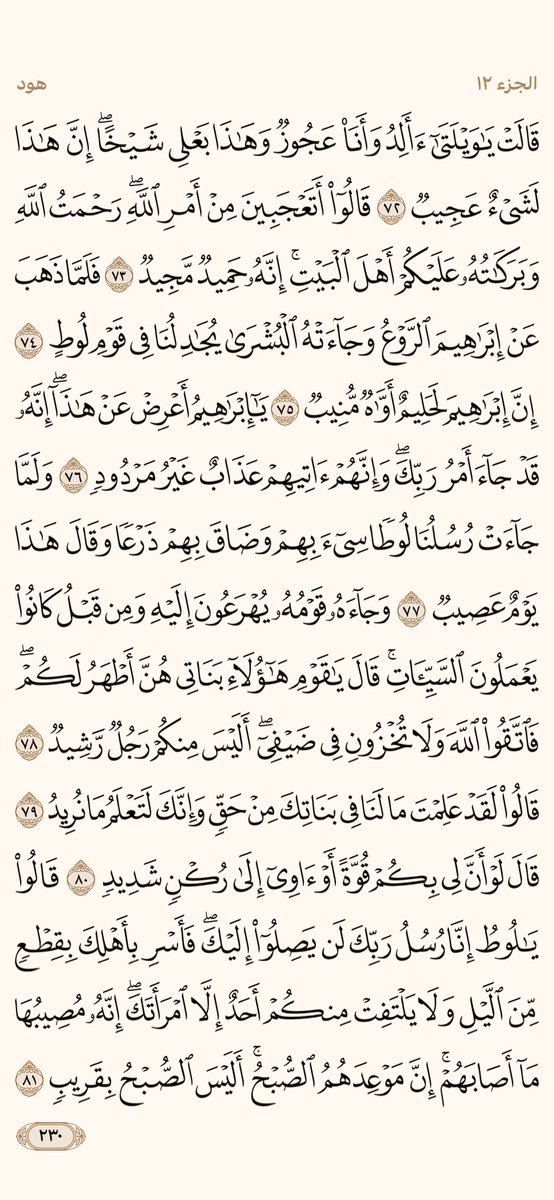 الجزء ١٢ هود
قَالَتْ يَٰوَيْلَتَىٰٓ ءَأَلِدُ وَأَنَا۠ عَجُوزٌ وَهَٰذَا بَعْلِى شَيْخًا ۖ إِنَّ هَٰذَا
لَشَىْءٌ عَجِيبٌ ٧٢ قَالُوٓا۟ أَتَعْجَبِينَ مِنْ أَمْرِ ٱللَّهِ ۖ رَحْمَتُ ٱللَّهِ
وَبَرَكَٰتُهُۥ عَلَيْكُمْ أَهْلَ ٱلْبَيْتِ ۚ إِنَّهُۥ حَمِيدٌ مَّجِيدٌ ٧٣ فَلَمَّا ذَهَبَ
عَنْ إِبْرَٰهِيمَ ٱلرَّوْعُ وَجَآءَتْهُ ٱلْبُشْرَىٰ يُجَٰدِلُنَا فِى قَوْمِ لُوطٍ ٧٤
إِنَّ إِبْرَٰهِيمَ لَحَلِيمٌ أَوَّٰهٌ مُّنِيبٌ ٧٥ يَٰٓإِبْرَٰهِيمُ أَعْرِضْ عَنْ هَٰذَآ ۖ إِنَّهُۥ
قَدْ جَآءَ أَمْرُ رَبِّكَ ۖ وَإِنَّهُمْ ءَاتِيهِمْ عَذَابٌ غَيْرُ مَرْدُودٍ ٧٦ وَلَمَّا
جَآءَتْ رُسُلُنَا لُوطًا سِىٓءَ بِهِمْ وَضَاقَ بِهِمْ ذَرْعًا وَقَالَ هَٰذَا
يَوْمٌ عَصِيبٌ ٧٧ وَجَآءَهُۥ قَوْمُهُۥ يُهْرَعُونَ إِلَيْهِ وَمِن قَبْلُ كَانُوا۟
يَعْمَلُونَ ٱلسَّيِّـَٔاتِ ۚ قَالَ يَٰقَوْمِ هَٰٓؤُلَآءِ بَنَاتِى هُنَّ أَطْهَرُ لَكُمْ ۖ
فَٱتَّقُوا۟ ٱللَّهَ وَلَا تُخْزُونِ فِى ضَيْفِىٓ ۖ أَلَيْسَ مِنكُمْ رَجُلٌ رَّشِيدٌ ٧٨
قَالُوا۟ لَقَدْ عَلِمْتَ مَا لَنَا فِى بَنَاتِكَ مِنْ حَقٍّ وَإِنَّكَ لَتَعْلَمُ مَا نُرِيدُ ٧٩
قَالَ لَوْ أَنَّ لِى بِكُمْ قُوَّةً أَوْ ءَاوِىٓ إِلَىٰ رُكْنٍ شَدِيدٍ ٨٠ قَالُوا۟
يَٰلُوطُ إِنَّا رُسُلُ رَبِّكَ لَن يَصِلُوٓا۟ إِلَيْكَ ۖ فَأَسْرِ بِأَهْلِكَ بِقِطْعٍ
مِّنَ ٱلَّيْلِ وَلَا يَلْتَفِتْ مِنكُمْ أَحَدٌ إِلَّا ٱمْرَأَتَكَ ۖ إِنَّهُۥ مُصِيبُهَا
مَآ أَصَابَهُمْ ۚ إِنَّ مَوْعِدَهُمُ ٱلصُّبْحُ ۚ أَلَيْسَ ٱلصُّبْحُ بِقَرِيبٍ ٨١
٢٣٠